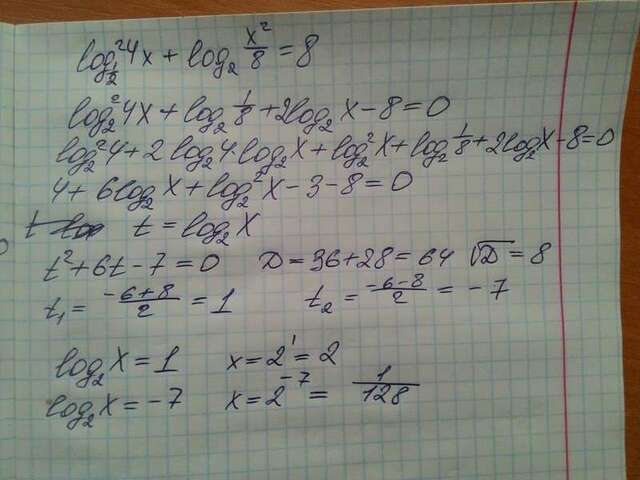 log²_{1/2} 4x + log₂ x²/8 = 8
log₂² 4x + log₂ 1/8 + 2log₂ x - 8 = 0
log₂² 4 + 2 log₂ 4 · log₂ x + log₂² x + log₂ 1/8 + 2log₂ x - 8 = 0
4 + 6log₂ x + log₂² x - 3 - 8 = 0
t = log₂ x
t² + 6t - 7 = 0 D = 36 + 28 = 64 √D = 8
t₁ = (-6+8)/2 = 1 t₂ = (-6-8)/2 = -7
log₂ x = 1 x = 2¹ = 2
log₂ x = -7 x = 2⁻⁷ = 1/128